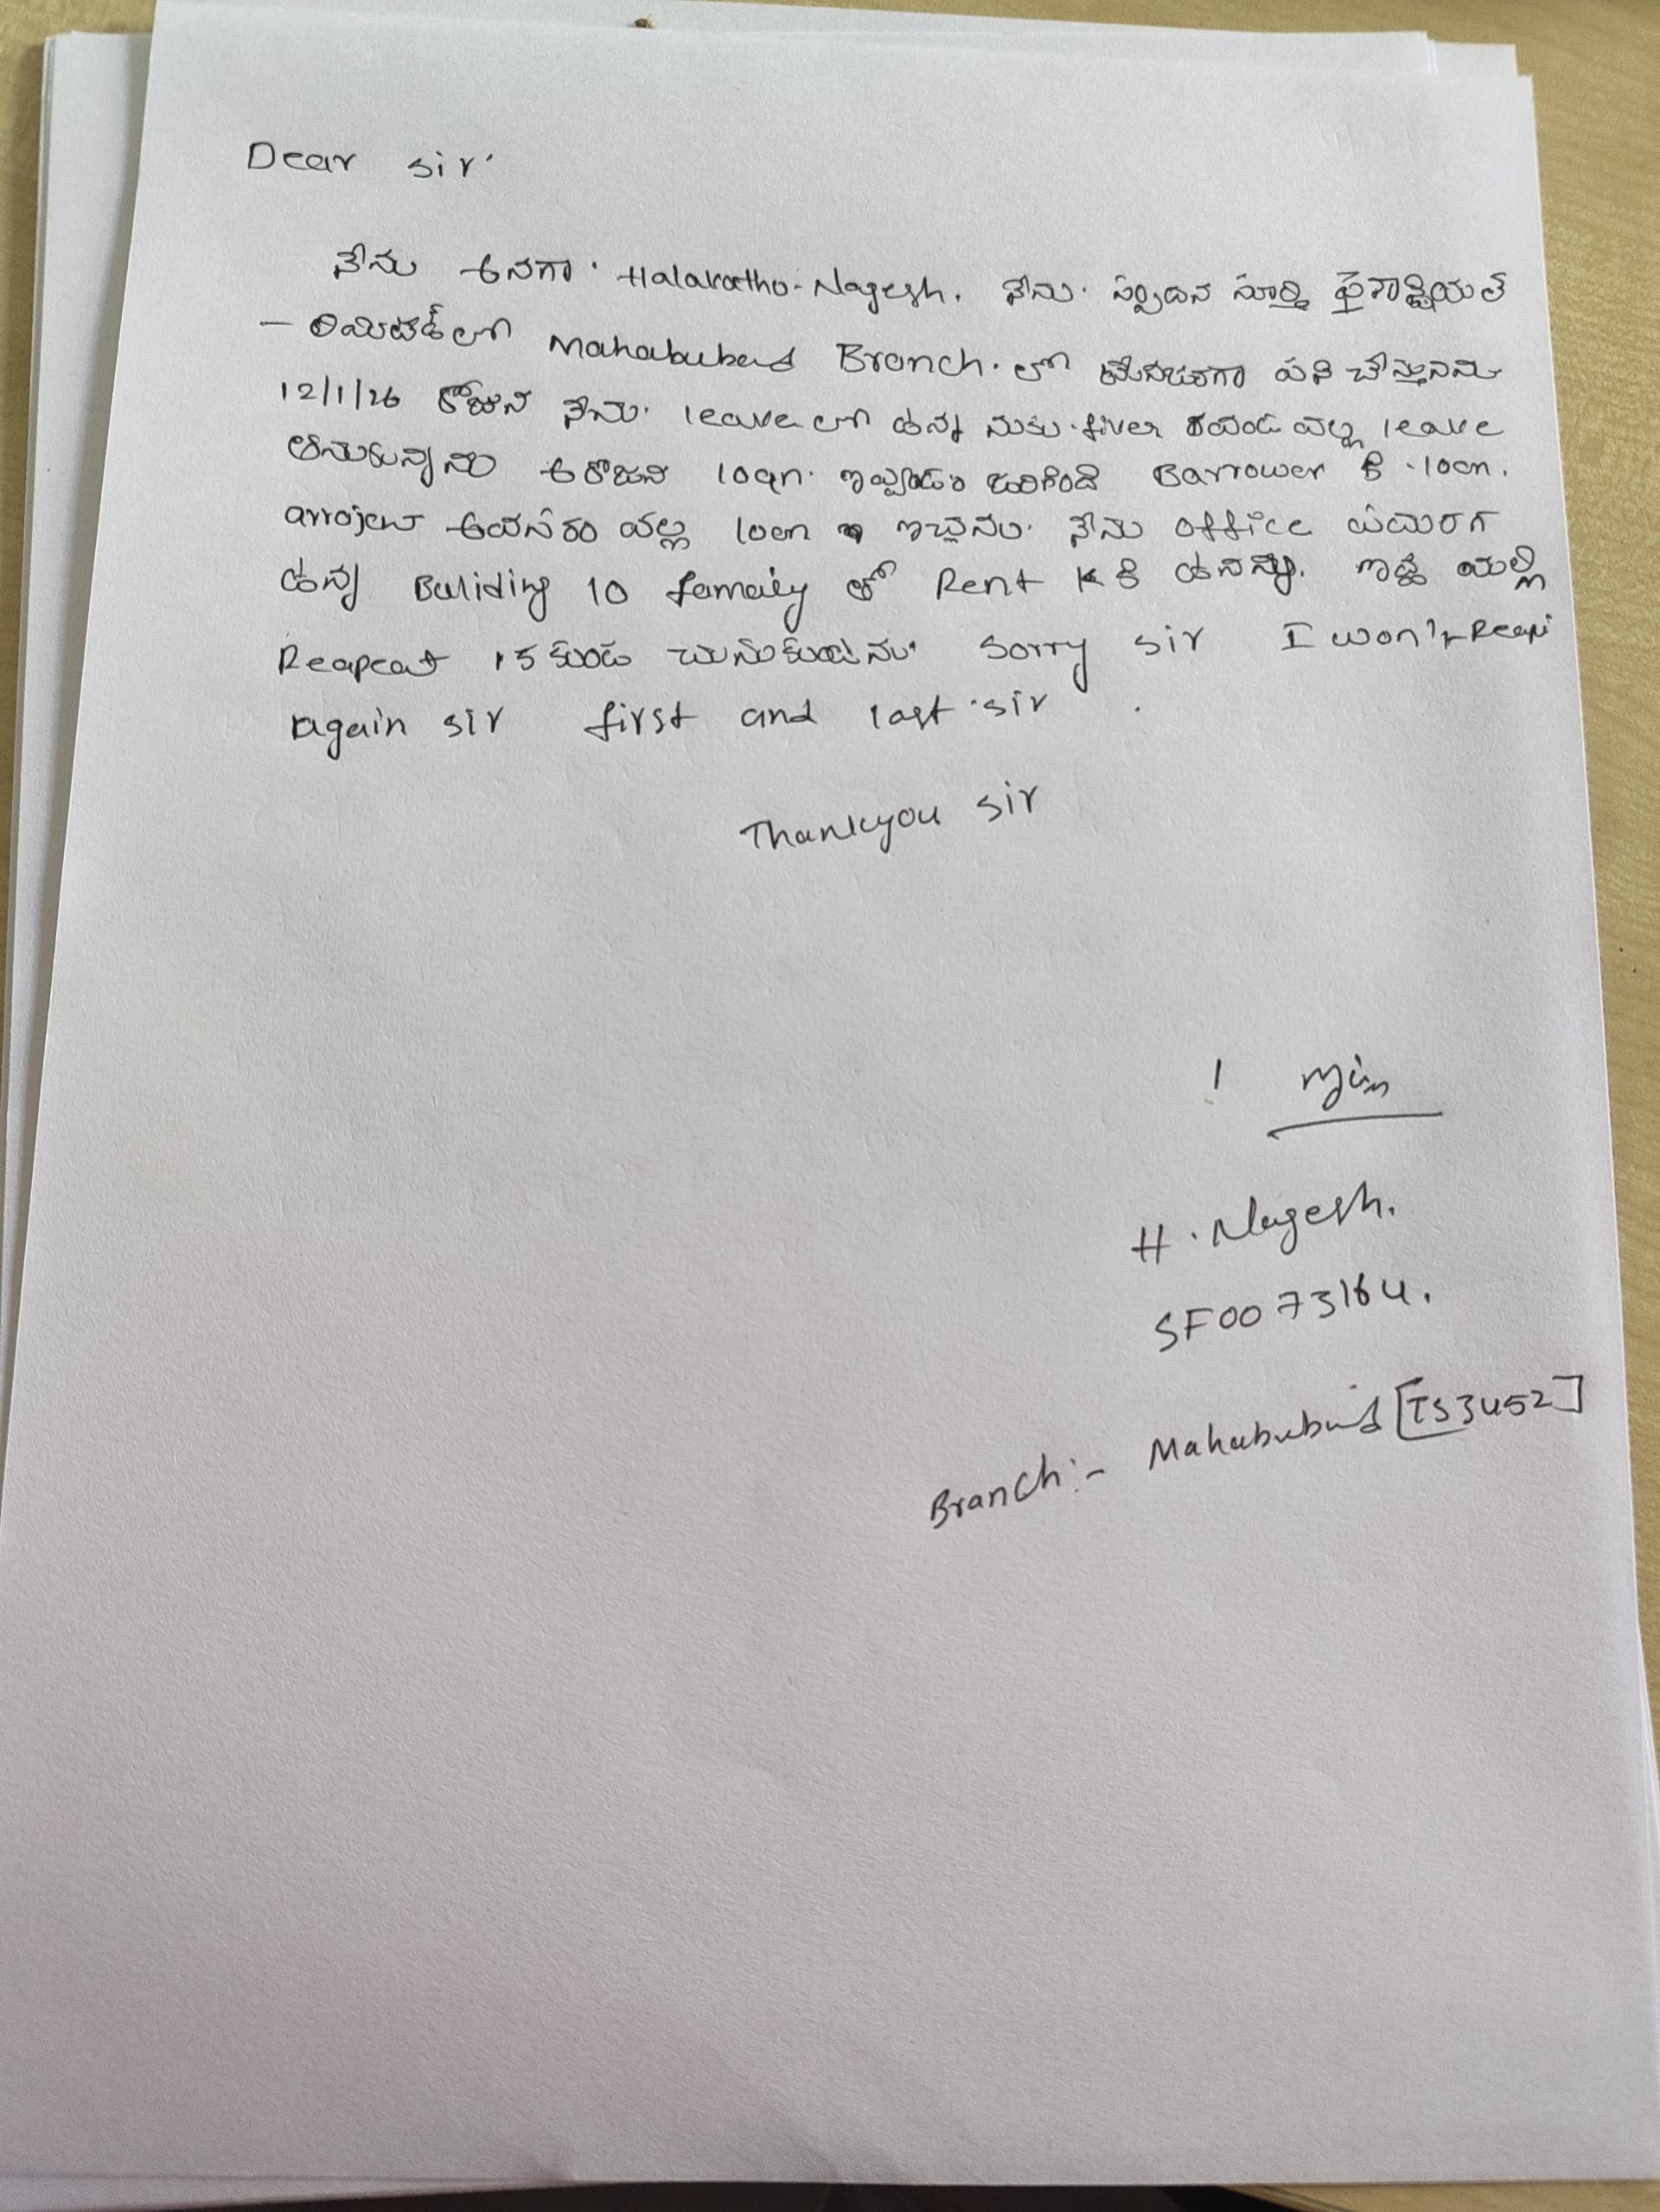 Dear sir.
నేను అనగా. Halavatho. Nagesh. నేను. స్పందన స్ఫూర్తి ఫైనాన్షియల్
- లిమిటెడ్ లో Mahabubabad Branch. లో మేనేజర్ గా పని చేస్తున్నను
12/1/26 రోజున నేను. leave లో ఉన్న నుకు. fiver రవండ వల్ల leave
అనుకున్నను ఆ రోజున loan. ఇవ్వడం జరిగింది Barrower కి. loan.
arrojent అవసరం వల్ల loan ఇచ్చను. నేను office పరంగ
ఉన్న Buliding 10 famaily తో Rent K కి ఉనన్ను. ఇట్ల మల్లి
Reapeat కకుండ చుసుకుంటను. sorry sir I won't Reapi
again sir first and last. sir .
Thankyou sir
H. Nagesh.
SF0073164.
Branch:- Mahabubabad [TS3452]